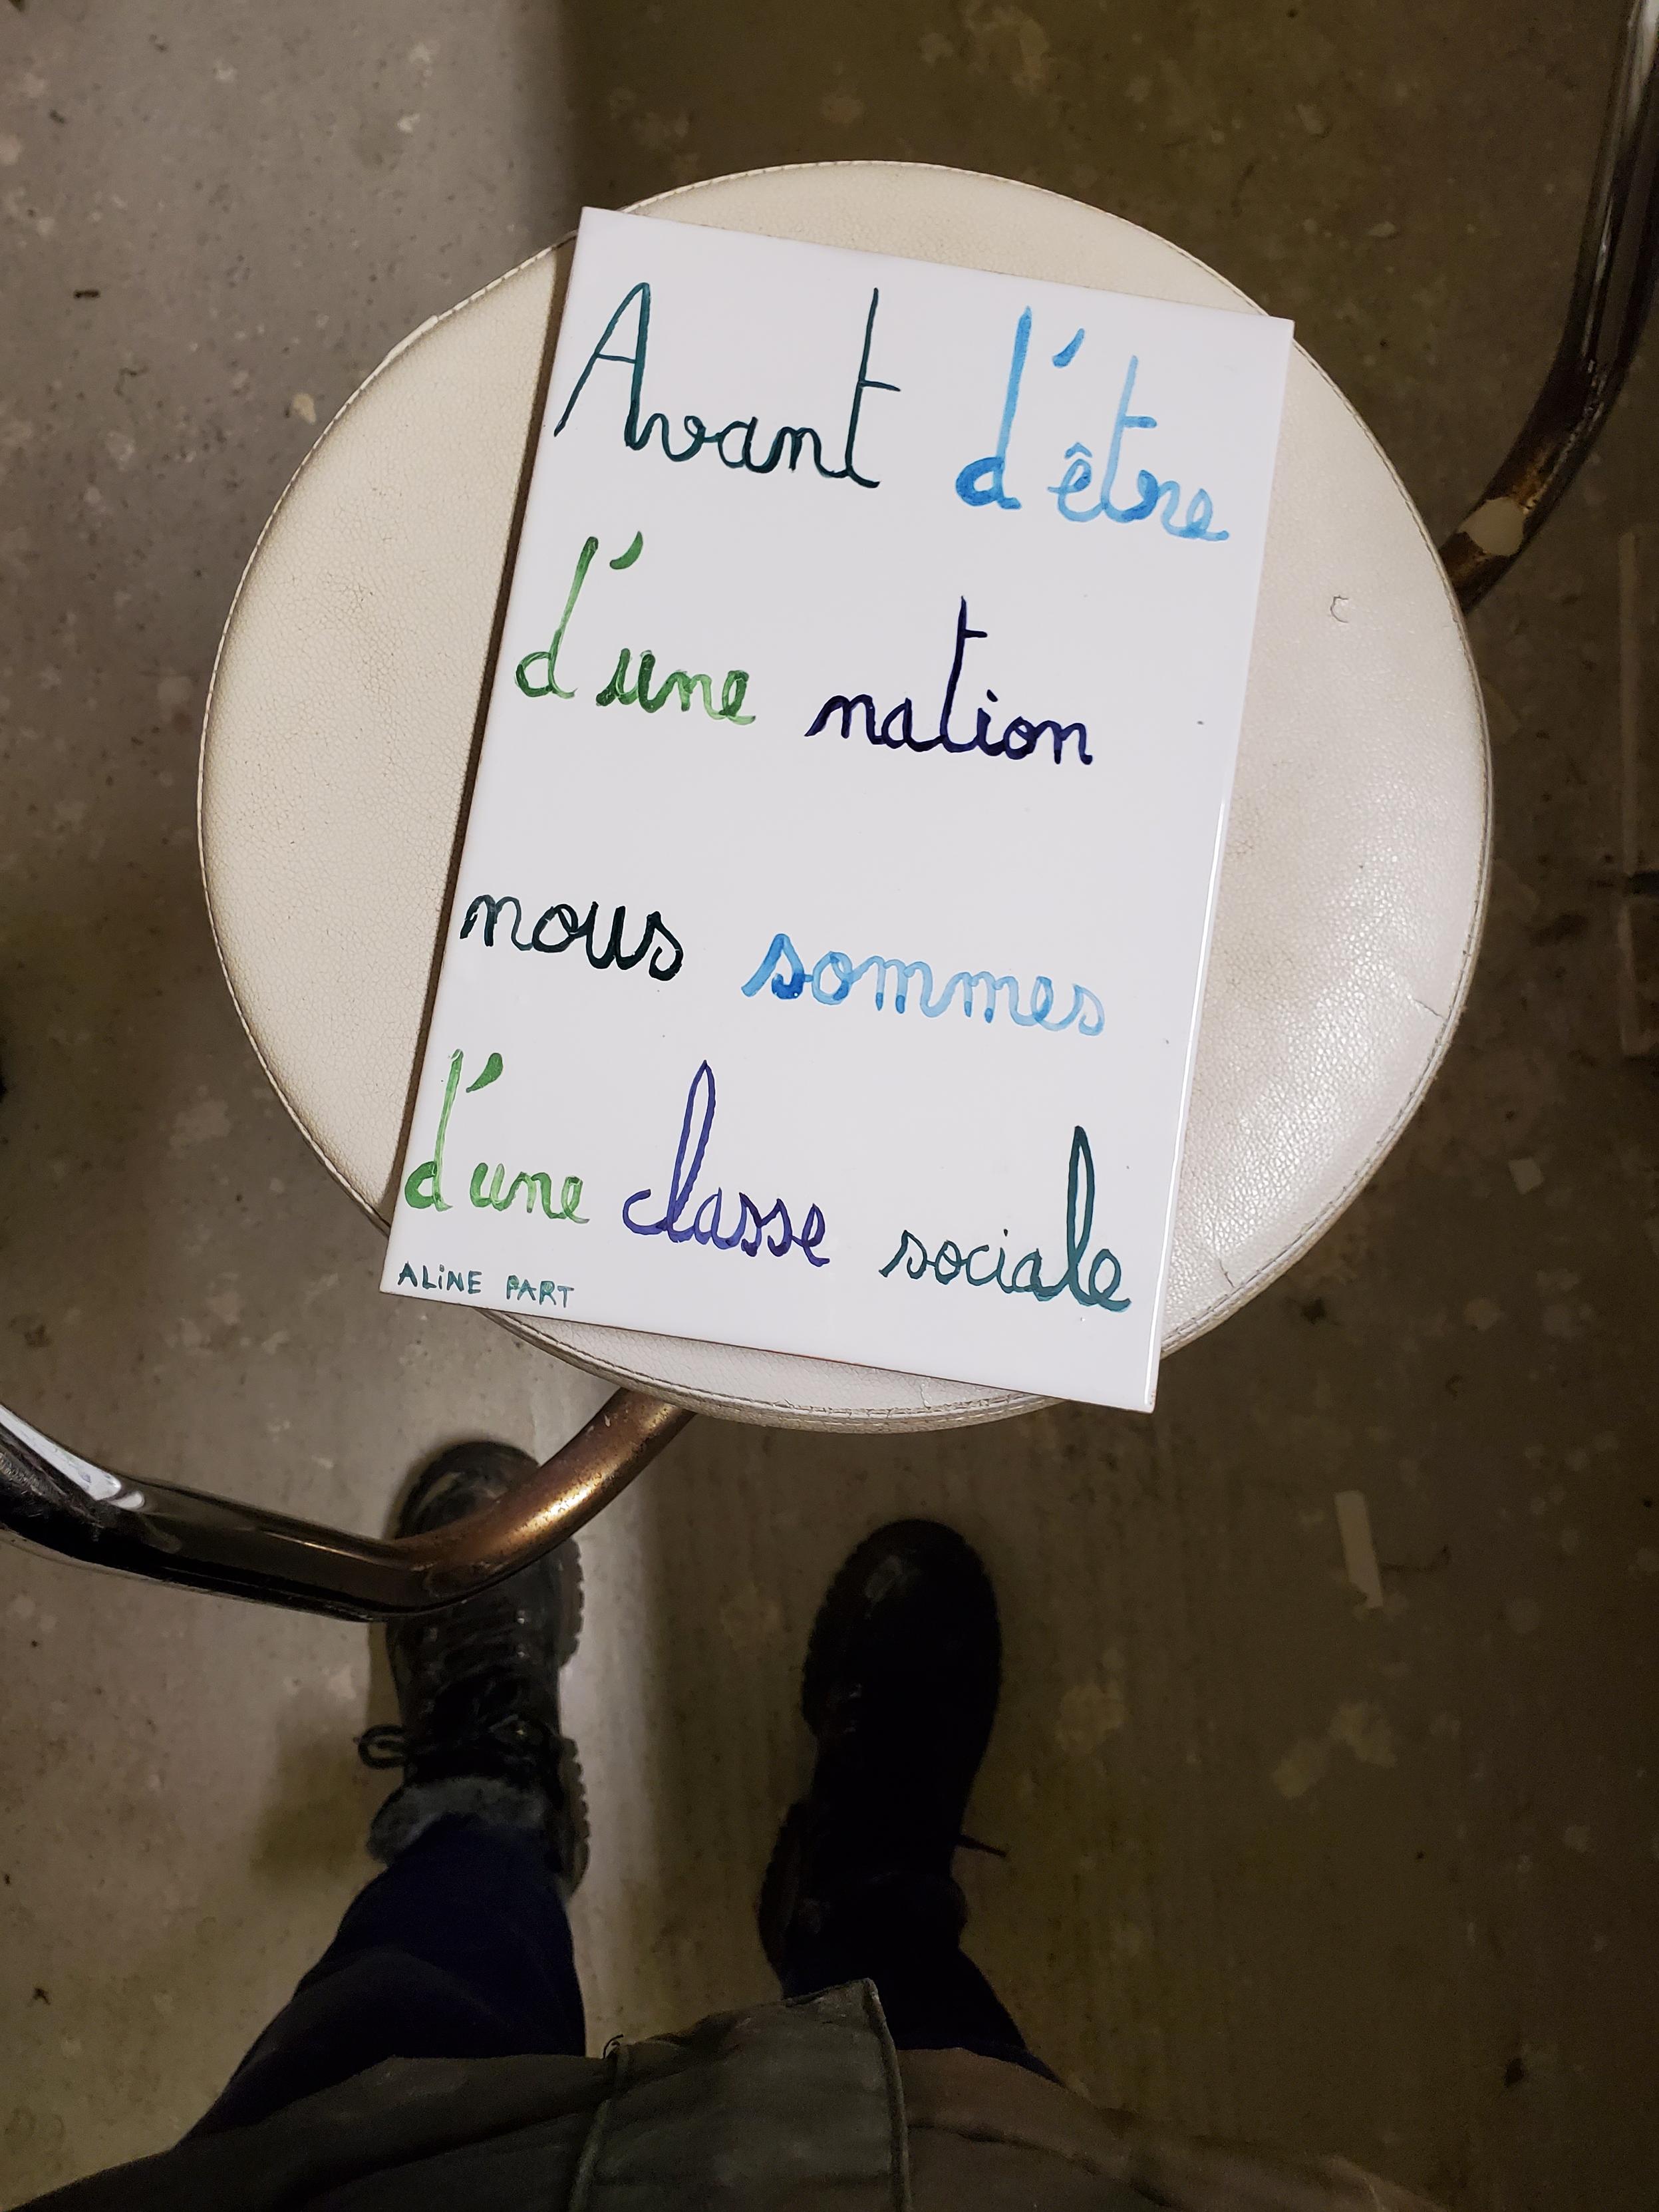 Avant d'être
d'une nation
nous sommes
d'une classe sociale
ALiNE PART